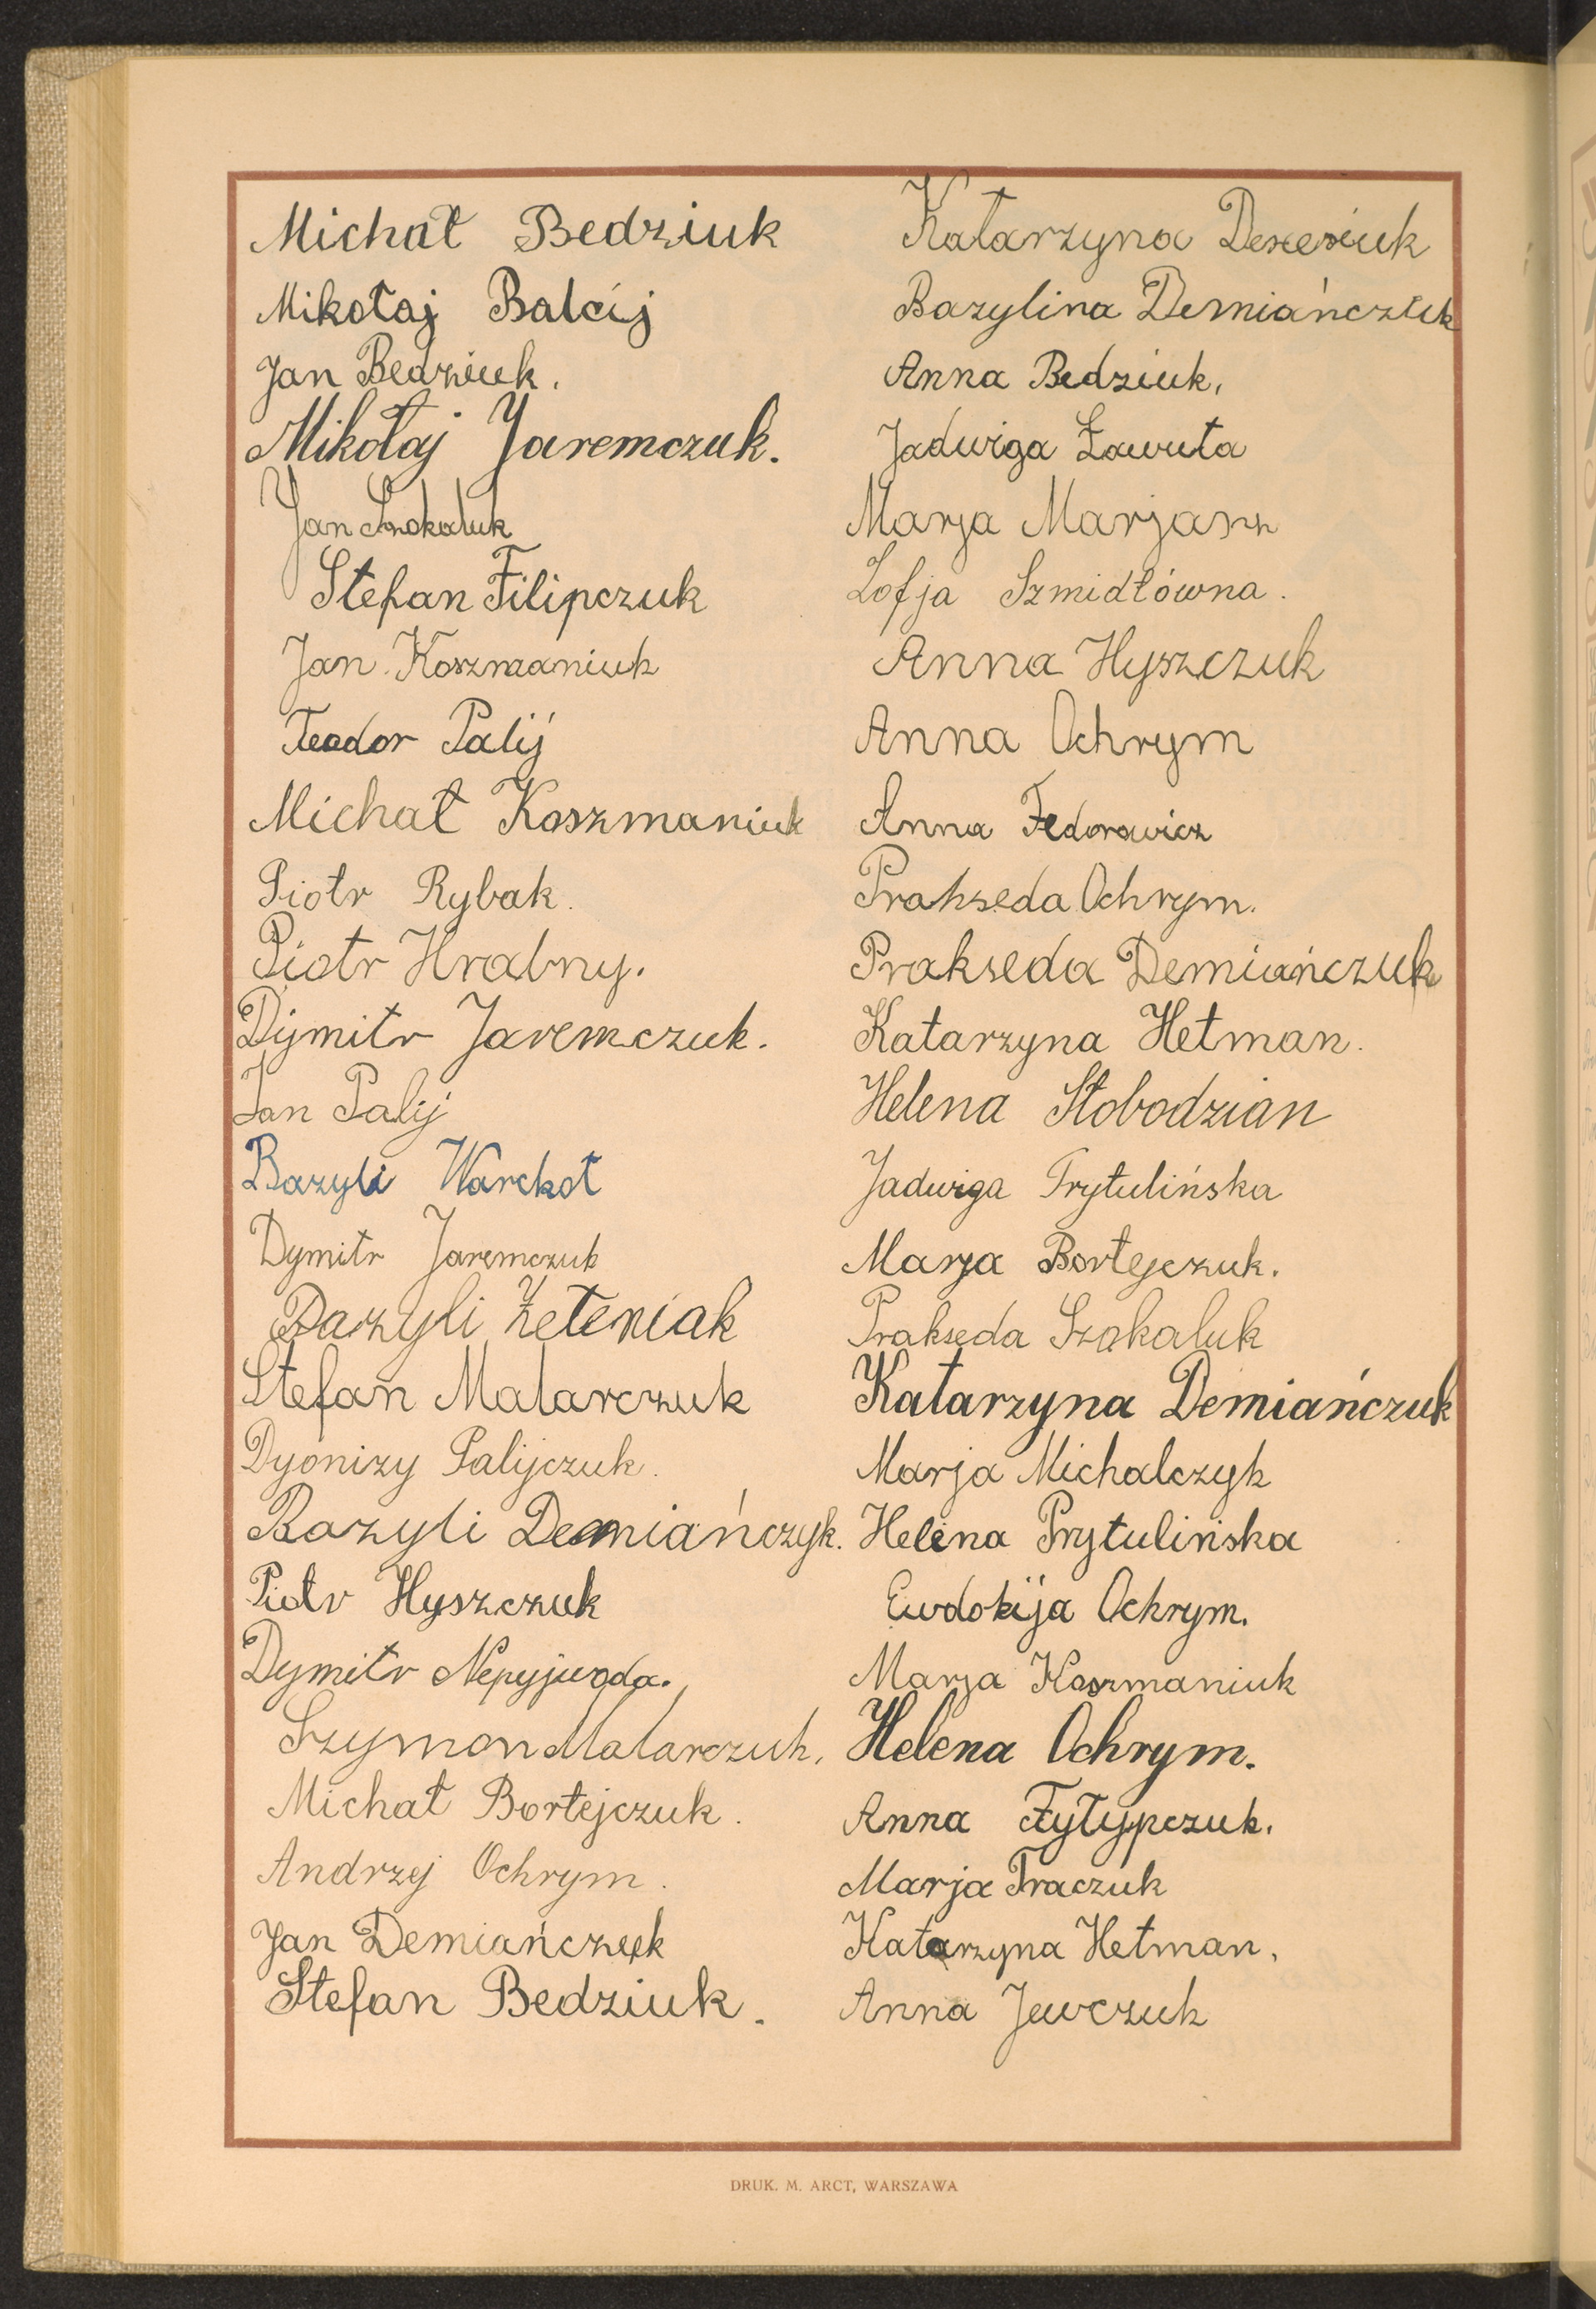 Michał Bedziuk
Mikołaj Balcij
Jan Bedziuk.
Mikołaj Jaremczuk.
Jan Szokaluk
Stefan Filipczuk
Jan Koszmaniuk
Teodor Palij
Michał Koszmaniuk
Piotr Rybak.
Piotr Hrabny.
Dymitr Jaremczuk.
Jan Palij
Bazyli Warchoł
Dymitr Jaremczuk
Bazyli Żeleniak
Stefan Malarczuk
Dyonizy Palijczuk.
Bazyli Demiańczyk.
Piotr Hyszczuk
Dymitr Nepyjwoda.
Szymon Malarczuk.
Michał Bortejczuk.
Andrzej Ochrym.
Jan Demiańczuk
Stefan Bedziuk.
Katarzyna
Bazylina Demiańczuk
Anna Bedziuk.
Jadwiga Ławuta
Marja Marjasz
Zofja Szmidtówna.
Anna Hyszczuk
Anna Ochrym
Anna Fedorowicz
Prakseda Ochrym.
Prakseda Demiańczuk
Katarzyna Hetman.
Helena Słobodzian
Jadwiga Prytulińska
Marja Bortejczuk.
Prakseda Szokaluk
Katarzyna Demiańczuk
Marja Michalczyk
Helena Prytulińska
Ewdokija Ochrym.
Marja Koszmaniuk
Helena Ochrym.
Anna Fyłypczuk.
Marja Traczuk
Katarzyna Hetman.
Anna Jewczuk
DRUK. M. ARCT, WARSZAWA